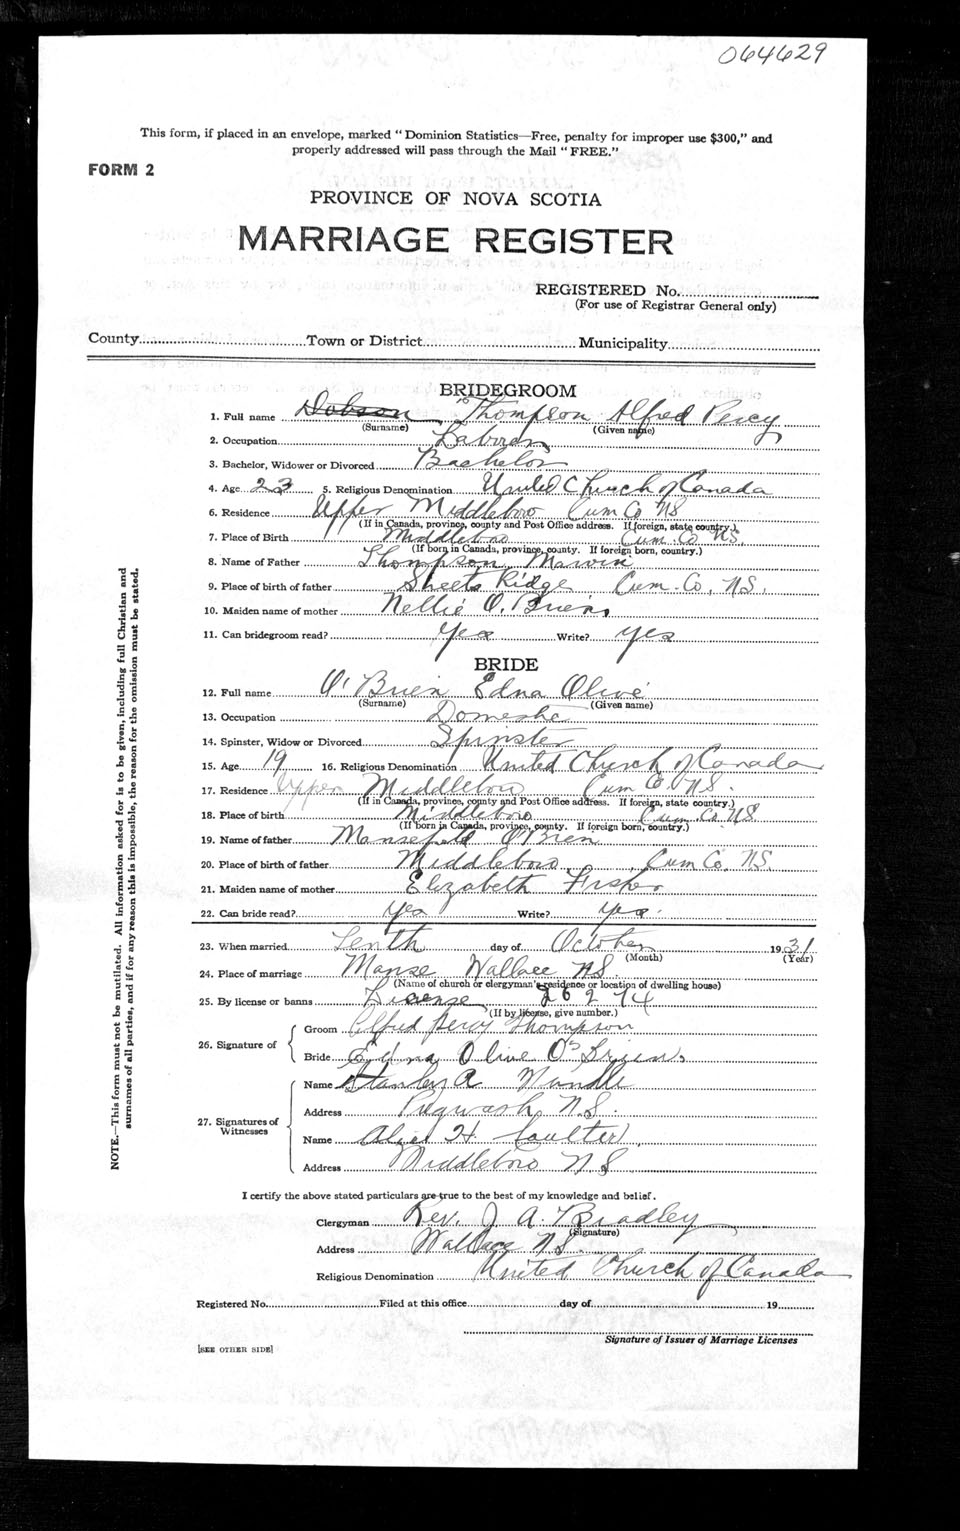 064629
This form, if placed in an envelope, marked "Dominion Statistics—Free, penalty for improper use $300," and
properly addressed will pass through the Mail "FREE."
FORM 2
PROVINCE OF NOVA SCOTIA
MARRIAGE REGISTER
REGISTERED No.
(For use of Registrar General only)
County Town or District Municipality
BRIDEGROOM
1. Full name Dobson Thompson Alfred Percy
(Surname) (Given name)
2. Occupation
3. Bachelor, Widower or Divorced Bachelor
4. Age 23 5. Religious Denomination United Church of Canada
6. Residence Upper Middleboro Cum Co NS
(If in Canada, province, county and Post Office address. If foreign, state country.)
7. Place of Birth Middleboro Cum. Co NS.
(If born in Canada, province, county. If foreign born, country.)
8. Name of Father Thompson Marvin
9. Place of birth of father Sheets Ridge Cum. Co, NS.
10. Maiden name of mother Nellie O'Brien
11. Can bridegroom read? Yes Write? yes
BRIDE
12. Full name O'Brien Edna Olive
(Surname) (Given name)
13. Occupation Domestic
14. Spinster, Widow or Divorced Spinster
15. Age 19 16. Religious Denomination United Church of Canada
17. Residence Upper Middleboro Cum Co. NS.
(If in Canada, province, county and Post Office address. If foreign, state country.)
18. Place of birth Middleboro Cum. Co NS
(If born in Canada, province, county. If foreign born, country.)
19. Name of father O'Brien
20. Place of birth of father Middleboro Cum Co, NS.
21. Maiden name of mother Elizabeth Fisher
22. Can bride read? yes Write? yes.
23. When married Tenth day of October 1931
(Month) (Year)
24. Place of marriage Manse Wallace NS.
(Name of church or clergyman's residence or location of dwelling house)
25. By license or banns License 26274
(If by license, give number.)
26. Signature of
Groom Alfred Percy Thompson
Bride Edna Olive O'Brien
27. Signatures of
Witnesses
Name Stanley A
Address Pugwash, N.S.
Name H. Coulter
Address Middleboro NS
I certify the above stated particulars are true to the best of my knowledge and belief.
Clergyman Rev. J A. Bradley
(Signature)
Address Wallace NS.
Religious Denomination United Church of Canada
Registered No. Filed at this office day of 19
Signature of Issuer of Marriage Licenses
[SEE OTHER SIDE]
NOTE.—This form must not be mutilated. All information asked for is to be given, including full Christian and
surnames of all parties, and if for any reason this is impossible, the reason for the omission must be stated.